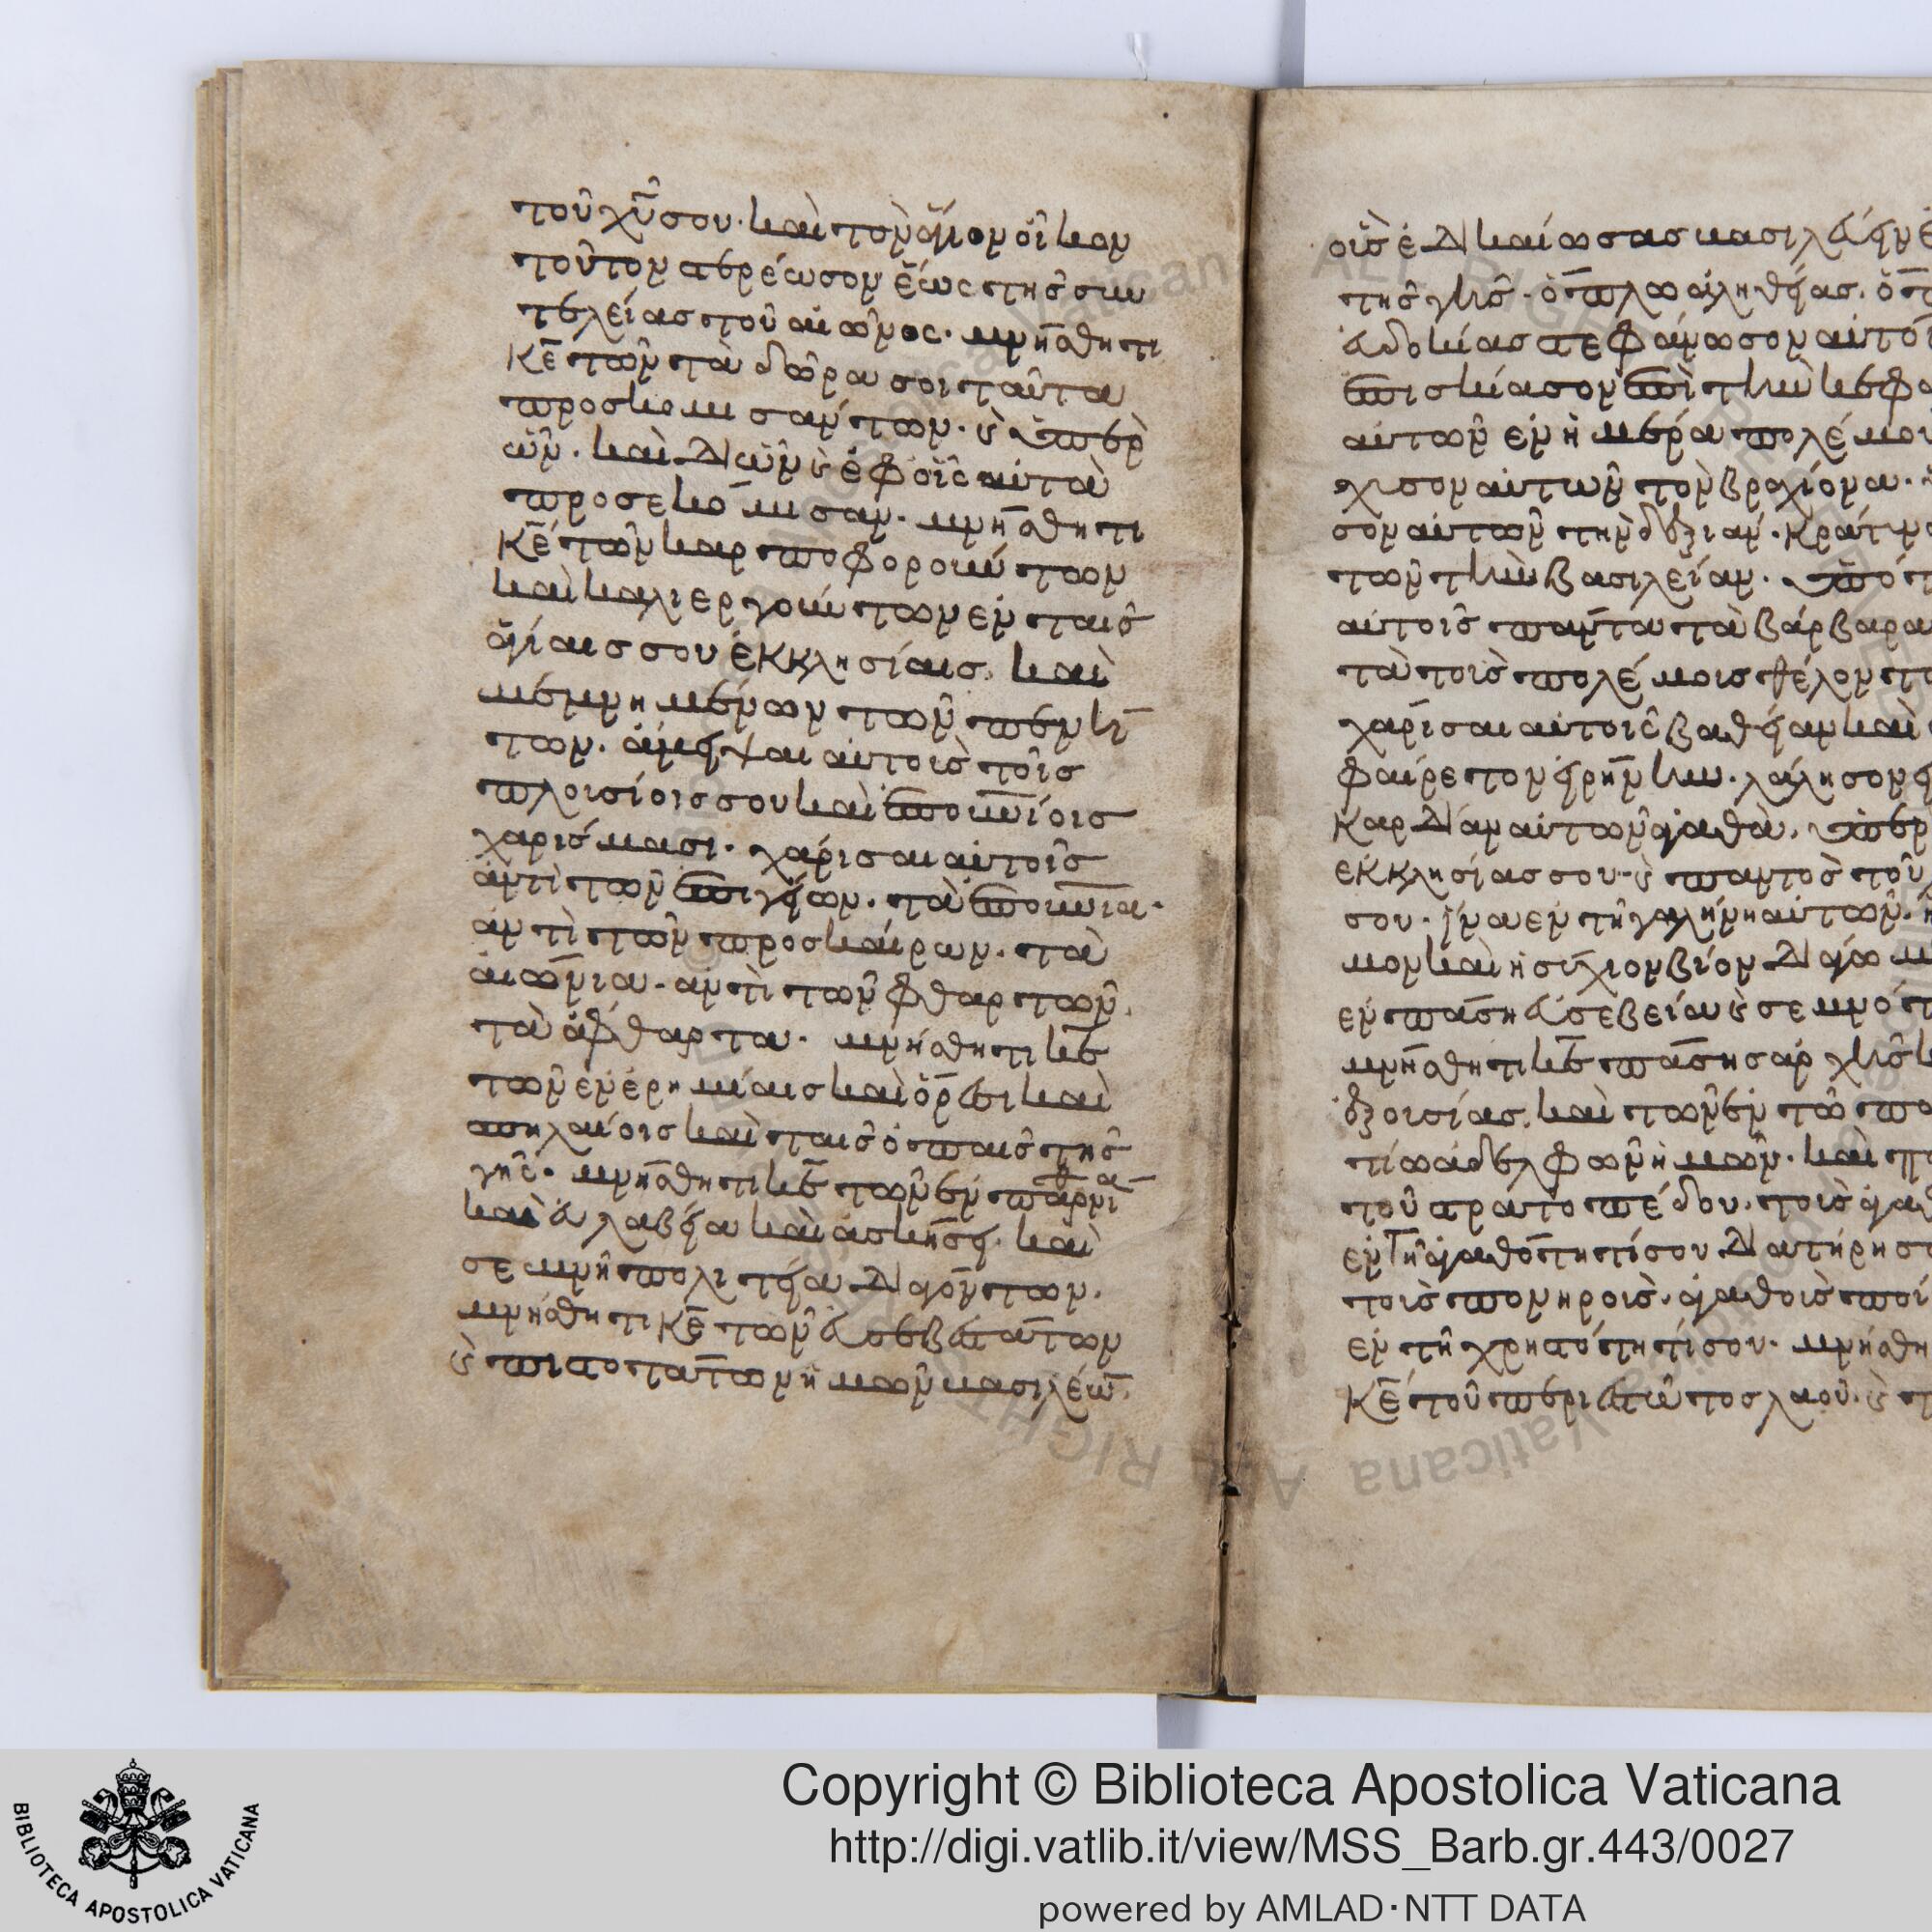 τοῦ χῦ σου· καὶ τὸν ἅγιον οἶκον
τοῦτον στερέωσον ἕως τῆς συν
τελείας τοῦ αἰῶνος· μνήσθητι
κε τῶν τὰ δῶρα σοι ταῦτα
προσκομισάντων· ϗ ὑπὲρ
ὧν· καὶ δι ὧν ϗ ἐφ οἷς αὐτὰ
προσεκόμισαν· μνήσθητι
κε τῶν καρποφορούντων
καὶ καλιεργούντων ἐν ταῖς
ἁγίαις σου ἐκκλησίαις· καὶ
μεμνημένων τῶν πενή
των· ἄμειψαι αὐτοὺς τοῖς
πλουσίοις σου καὶ ἐπουνίοις
χαρίσμασι· χάρισαι αὐτοῖς
ἀντὶ τῶν ἐπιγείων· τὰ ἐπουνια·
ἀντὶ τῶν προσκαίρων· τὰ
αἰώνια· ἀντὶ τῶν φθαρτῶν·
τὰ ἄφθαρτα· μνήσθητι κε
τῶν ἐν ἐρημίαις καὶ ὄρεσι καὶ
σπηλαίοις καὶ ταῖς ὀπαῖς τῆς
γῆς· μνήσθητι κε τῶν ἐν παρθενία
καὶ εὐλαβεία καὶ ἀσκήσει· καὶ
σεμνῆ πολιτεία διαγόντων·
μνήσθητι κε τῶν εὐσεβεστάτων
ϗ πιστοτάτων ἡμῶν βασιλέων·
οὓς ἐδικαίωσας βασιλεύειν ἐ
τῆς γῆς· ὅπλω ἀληθείας· ὅπ
εὐδοκίας στεφάνωσον αὐτού
ἐπισκίασον ἐπὶ τὴν κεφα
αὐτῶν ἐν ἡμέρα πολέμου
χισον αὐτῶν τὸν βραχίονα·
σον αὐτῶν τὴν δεξιάν· κράτυνο
τῶν τὴν βασιλείαν· ὑπότ
αὐτοῖς πάντα τὰ βάρβαρα
τὰ τοὺς πολέμους θέλοντα
χάρισαι αὐτοῖς βαθεῖαν καὶ
φαίρετον εἰρήνην· λάλησον εἰ
καρδίαν αὐτῶν ἀγαθὰ· ὑπὲρ
ἐκκλησίας σου· ϗ παντὸς τοῦ
σου· ἵνα ἐν τῆ γαλήνη αὐτῶν·
μον καὶ ἡσύχιον βίον διάγω μ
ἐν πάση εὐσεβεία ϗ σεμνότ
μνήσθητι κε πάσης ἀρχῆς κ
ἐξουσίας· καὶ τῶν ἐν τῶ πα
τίω ἀδελφῶν ἡμῶν· καὶ πα
τοῦ στρατοπέδου· τοὺς ἀγαθ
ἐν τῆ ἀγαθότητί σου διατήρησ
τοὺς πονηροὺς· ἀγαθοὺς ποί
ἐν τῆ χρηστότητί σου· μνήσθη
κε τοῦ περιεστῶτος λαοῦ· ϗ τ
BIBLIOTECA APOSTOLICA VATICANA
Copyright © Biblioteca Apostolica Vaticana
http://digi.vatlib.it/view/MSS_Barb.gr.443/0027
powered by AMLAD·NTT DATA